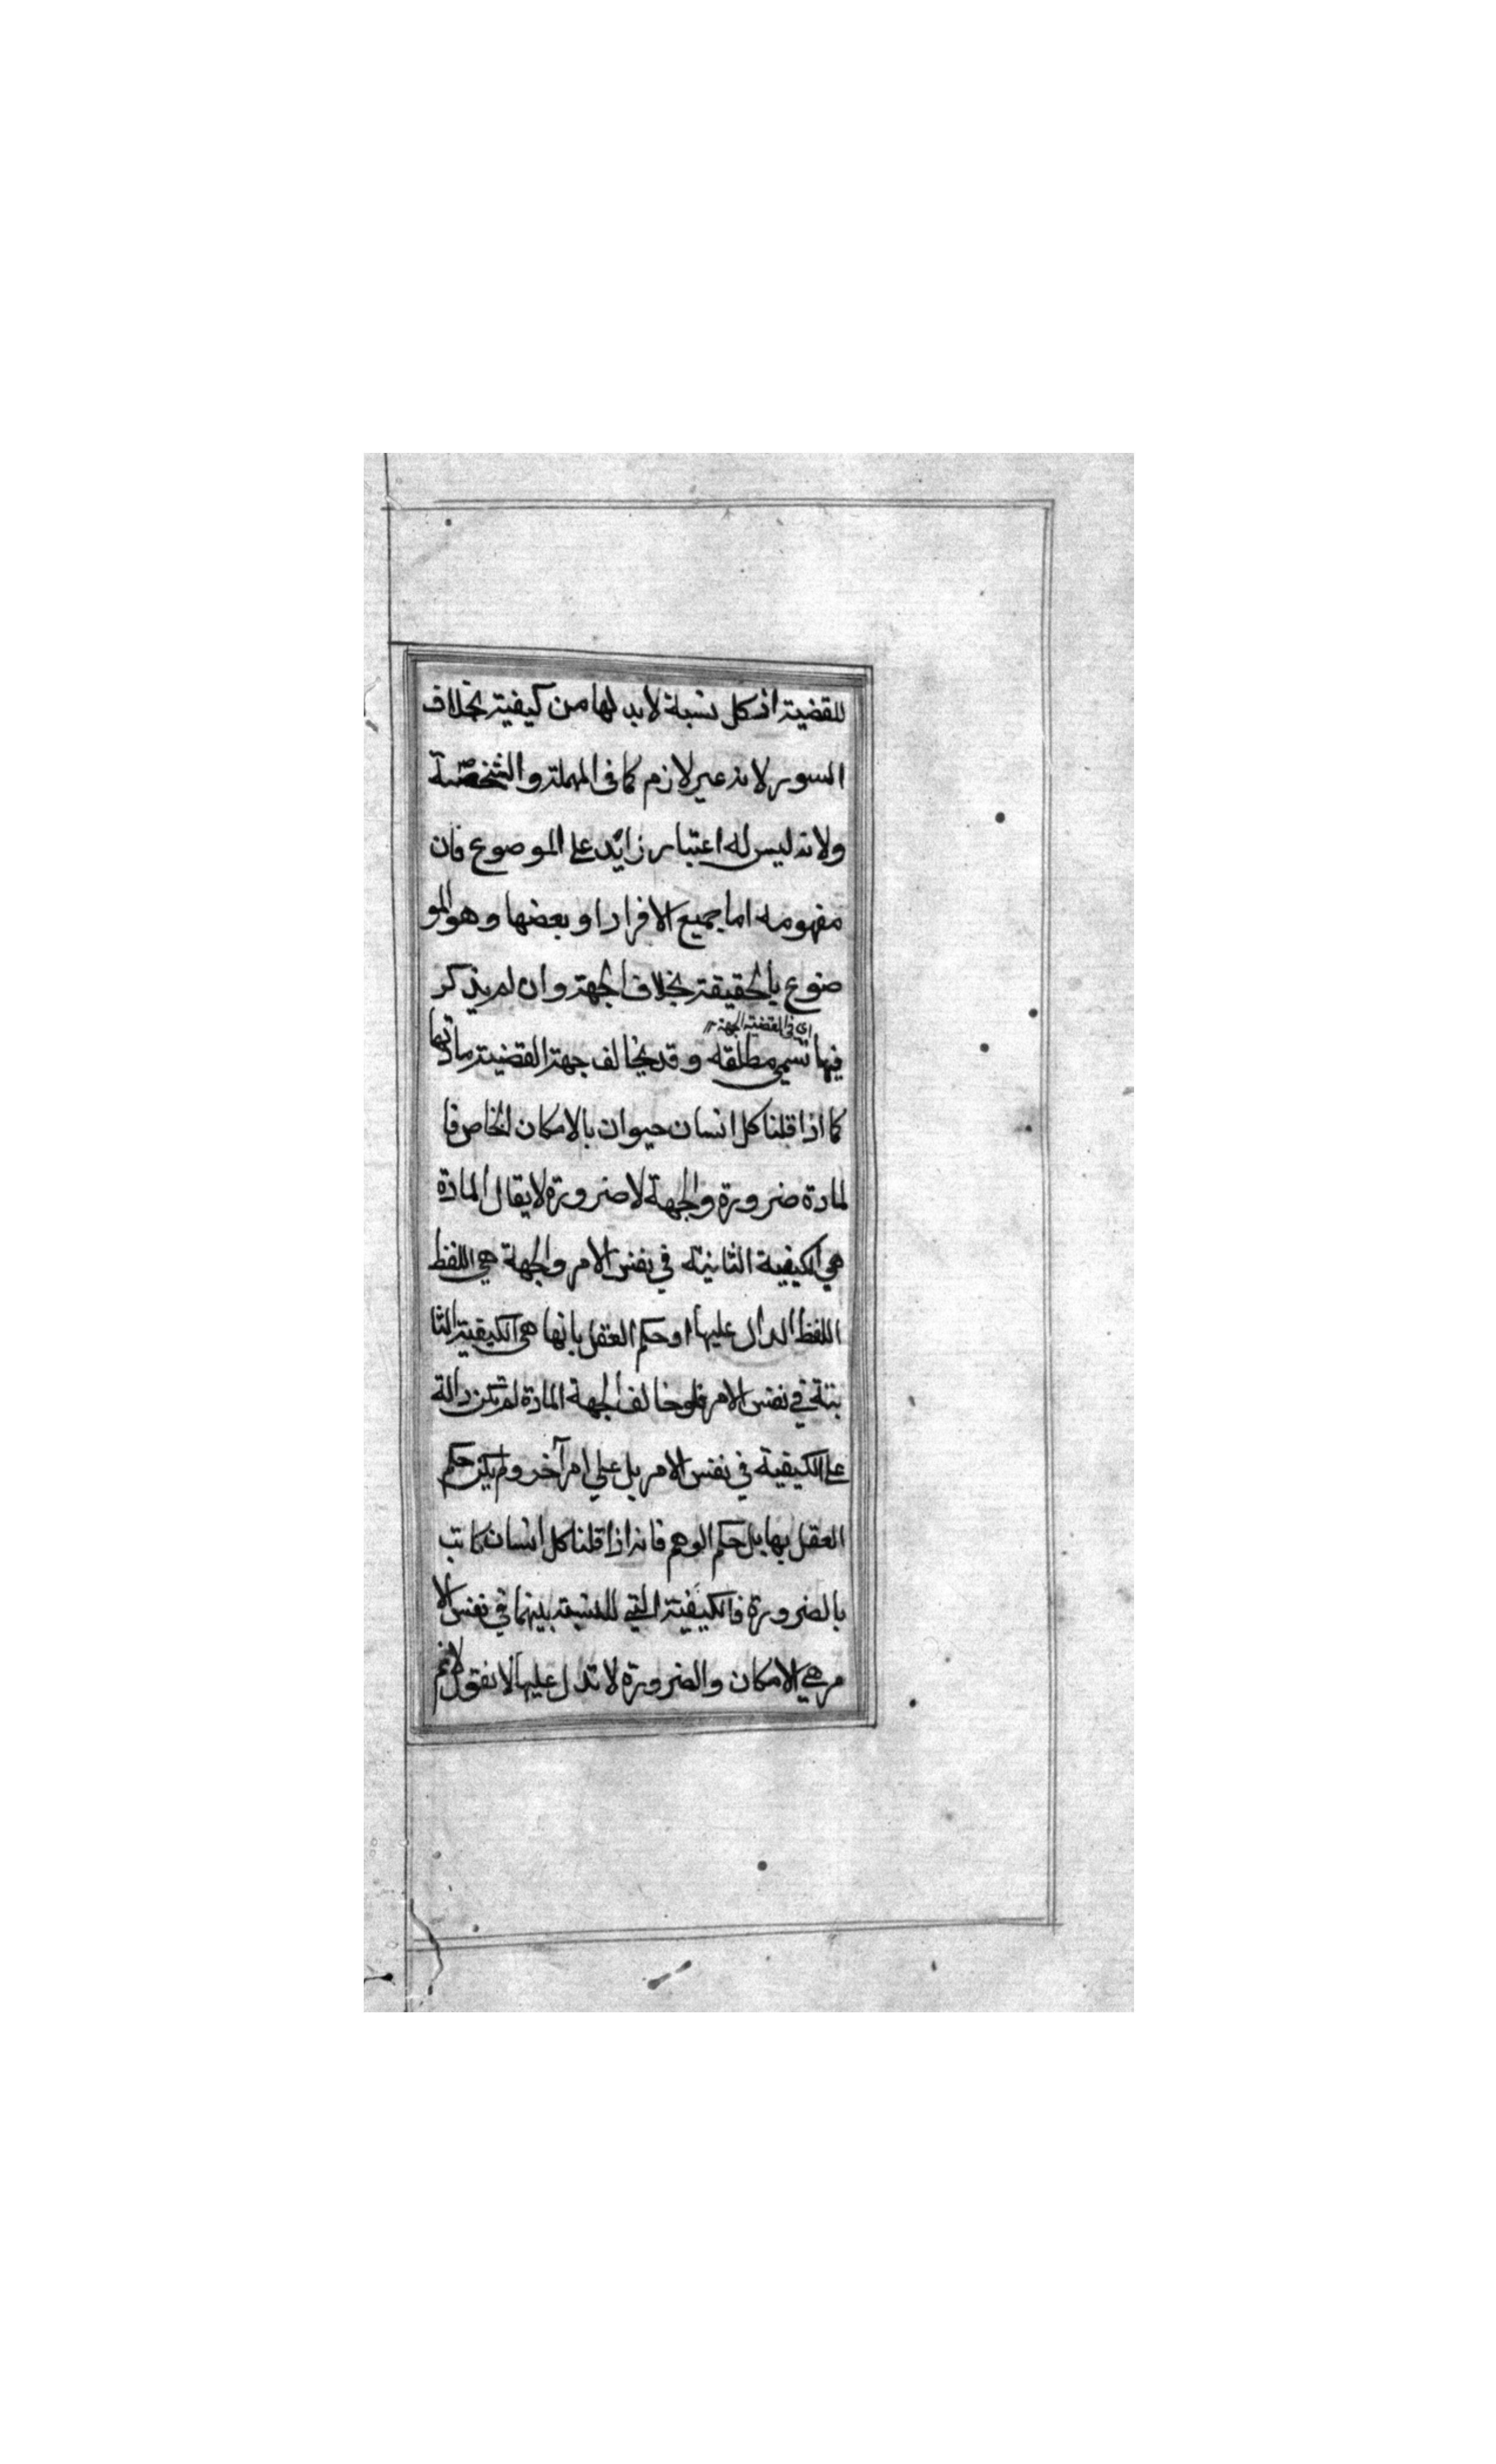 للقضية اذ كل نسبة لابد لها من كيفية بخلاف
السور لانه غير لازم كما فى المهملة والشخصية
ولانه ليس له اعتبار زايد على الموضوع فان
مفهومه اما جميع الافراد او بعضها وهو المو
ضوع بالحقيقة بخلاف الجهة وان لم يذكر
اى فى القضية الجهة
فيها تسمى مطلقه وقد يخالف جهة القضية مادتها
كما اذا قلنا كل انسان حيوان بالامكان الخاص فا
لمادة ضرورة والجهة لا ضرورة لا يقال المادة
هي الكيفية الثانية في نفس الامر والجهة هي اللفظ
اللفظ الدال عليها او حكم العقل بانها هى الكيفية الثا
بتة في نفس الامر فلو خالف الجهة المادة لم تكن دالة
على الكيفية في نفس الامر بل على امر آخر ولم يكن حكم
العقل بها بل حكم الوهم فانه اذا قلنا كل انسان كاتب
بالضرورة فالكيفية التي للنسبة بينهما في نفس الا
مر هي الامكان والضرورة لا تدل عليها لا نقول لانم